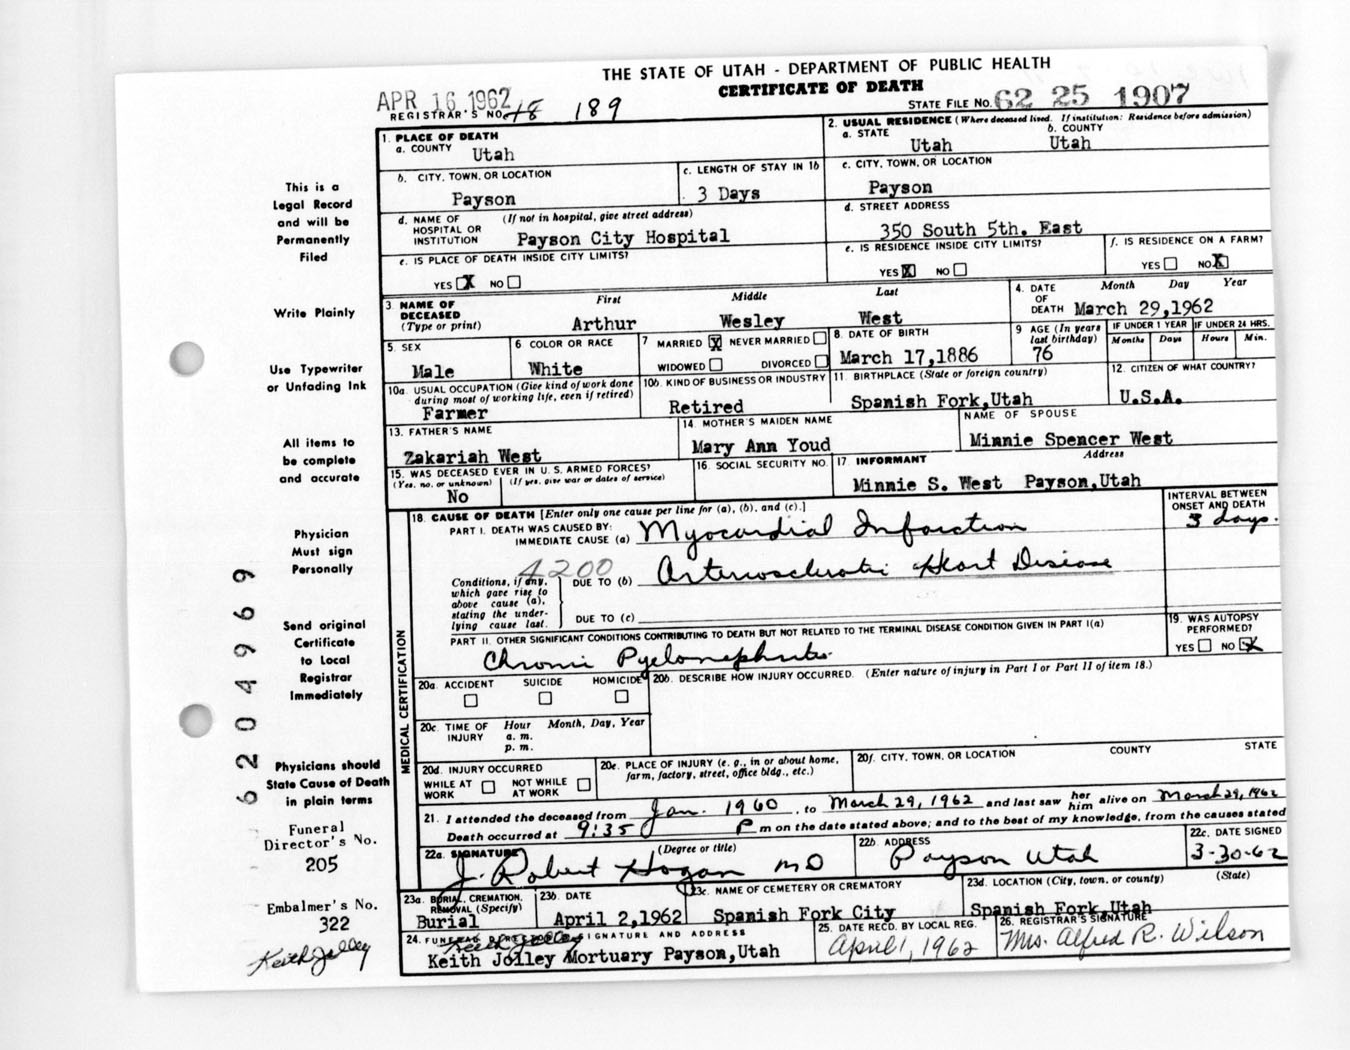 THE STATE OF UTAH - DEPARTMENT OF PUBLIC HEALTH
CERTIFICATE OF DEATH
APR 16 1962
REGISTRAR'S NO. 48 189
STATE FILE NO. 62 25 1907
1. PLACE OF DEATH
a. COUNTY Utah
2. USUAL RESIDENCE (Where deceased lived. If institution: Residence before admission)
a. STATE Utah b. COUNTY Utah
b. CITY, TOWN, OR LOCATION Payson
c. LENGTH OF STAY IN 1b 3 Days
c. CITY, TOWN, OR LOCATION Payson
d. NAME OF HOSPITAL OR INSTITUTION (If not in hospital, give street address) Payson City Hospital
d. STREET ADDRESS 350 South 5th. East
e. IS PLACE OF DEATH INSIDE CITY LIMITS? YES X NO
e. IS RESIDENCE INSIDE CITY LIMITS? YES X NO
f. IS RESIDENCE ON A FARM? YES NO X
3. NAME OF DECEASED (Type or print) First Middle Last
Arthur Wesley West
4. DATE OF DEATH Month Day Year
March 29,1962
5. SEX Male
6. COLOR OR RACE White
7 MARRIED X NEVER MARRIED WIDOWED DIVORCED
8. DATE OF BIRTH March 17,1886
9 AGE (In years last birthday) 76
IF UNDER 1 YEAR Months Days
IF UNDER 24 HRS. Hours Min.
10a. USUAL OCCUPATION (Give kind of work done during most of working life, even if retired) Farmer
10b. KIND OF BUSINESS OR INDUSTRY Retired
11. BIRTHPLACE (State or foreign country) Spanish Fork,Utah
12. CITIZEN OF WHAT COUNTRY? U.S.A.
13. FATHER'S NAME Zakariah West
14. MOTHER'S MAIDEN NAME Mary Ann Youd
NAME OF SPOUSE Minnie Spencer West
15. WAS DECEASED EVER IN U. S. ARMED FORCES?
(Yes, no, or unknown) No (If yes, give war or dates of service)
16. SOCIAL SECURITY NO.
17. INFORMANT Address
Minnie S. West Payson,Utah
18. CAUSE OF DEATH [Enter only one cause per line for (a), (b), and (c).]
INTERVAL BETWEEN ONSET AND DEATH
PART I. DEATH WAS CAUSED BY:
IMMEDIATE CAUSE (a) Myocardial Infarction 3 days.
4200
Conditions, if any, which gave rise to above cause (a), stating the underlying cause last.
DUE TO (b) Arteriosclerotic Heart Disease
DUE TO (c)
PART II. OTHER SIGNIFICANT CONDITIONS CONTRIBUTING TO DEATH BUT NOT RELATED TO THE TERMINAL DISEASE CONDITION GIVEN IN PART I(a)
Chronic Pyelonephritis
19. WAS AUTOPSY PERFORMED?
YES NO X
MEDICAL CERTIFICATION
20a. ACCIDENT SUICIDE HOMICIDE
20b. DESCRIBE HOW INJURY OCCURRED. (Enter nature of injury in Part I or Part II of item 18.)
20c. TIME OF INJURY Hour Month, Day, Year
a. m.
p. m.
20d. INJURY OCCURRED
WHILE AT WORK NOT WHILE AT WORK
20e. PLACE OF INJURY (e. g., in or about home, farm, factory, street, office bldg., etc.)
20f. CITY, TOWN, OR LOCATION COUNTY STATE
21. I attended the deceased from Jan. 1960, to March 29, 1962 and last saw her him alive on March 29, 1962
Death occurred at 9:35 P m on the date stated above; and to the best of my knowledge, from the causes stated
22a. SIGNATURE (Degree or title)
J. Robert Hogan MD
22b. ADDRESS Payson Utah
22c. DATE SIGNED 3-30-62
23a. BURIAL, CREMATION, REMOVAL (Specify) Burial
23b. DATE April 2,1962
23c. NAME OF CEMETERY OR CREMATORY Spanish Fork City
23d. LOCATION (City, town, or county) (State)
Spanish Fork,Utah
24. FUNERAL DIRECTOR'S SIGNATURE AND ADDRESS
Keith Jolley
Keith Jolley Mortuary Payson,Utah
25. DATE RECD. BY LOCAL REG. April 1, 1962
26. REGISTRAR'S SIGNATURE Mrs. Alfred R. Wilson
This is a
Legal Record
and will be
Permanently
Filed
Write Plainly
Use Typewriter
or Unfading Ink
All items to
be complete
and accurate
Physician
Must sign
Personally
Send original
Certificate
to Local
Registrar
Immediately
Physicians should
State Cause of Death
in plain terms
Funeral
Director's No.
205
Embalmer's No.
322
Keith Jolley
6204969